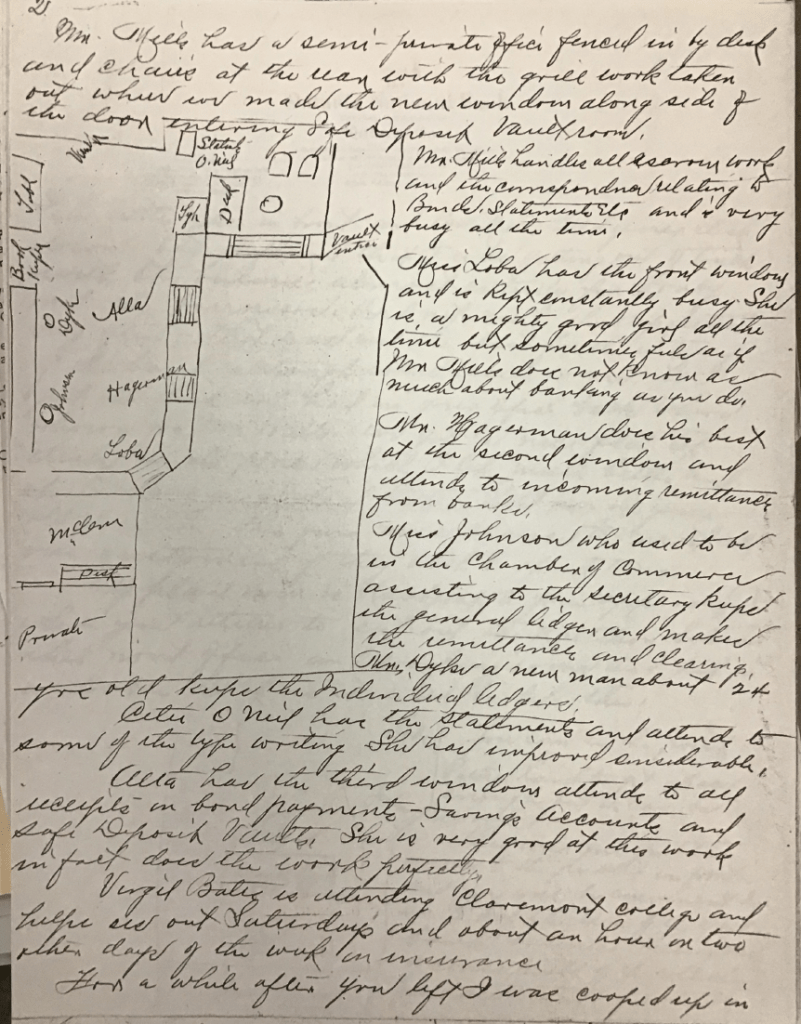 2)
Mr. Mills has a semi-private office fenced in by desk
and chairs at the rear with the grill work taken
out where we made the new window along side of
the door entering Safe Deposit Vault room.
Statmt
O Niel
Desk
Vault
entrance
Book
Keeper
Dyk
Alta
Johnson
Hagerman
Loba
McClern
Desk
Private
Mr. Mills handles all escrow work
and the correspondence relating to
Bonds, Statements Etc and is very
busy all the time.
Miss Loba has the front window
and is kept constantly busy. She
is a mighty good girl all the
time but sometimes feels as if
Mr Mills does not know as
much about banking as you do.
Mr. Hagerman does his best
at the second window and
attends to incoming remittance
from banks.
Miss Johnson who used to be
in the Chamber of Commerce
assisting to the secretary keeps
the general ledger and makes
the remittance and clearing.
Mr. Dyke a new man about 24
yrs old keeps the Individual ledgers.
O Niel has the statements and attends to
some of the type writing She has improved considerable.
Alta has the third window attends to all
receipts on bond payments - Savings Accounts and
Safe Deposit Vaults. She is very good at this work
in fact does the work perfectly.
Virgil Batez is attending Claremont college and
helps us out Saturdays and about an hour on two
other days of the week in insurance
For a while after you left I was cooped up in